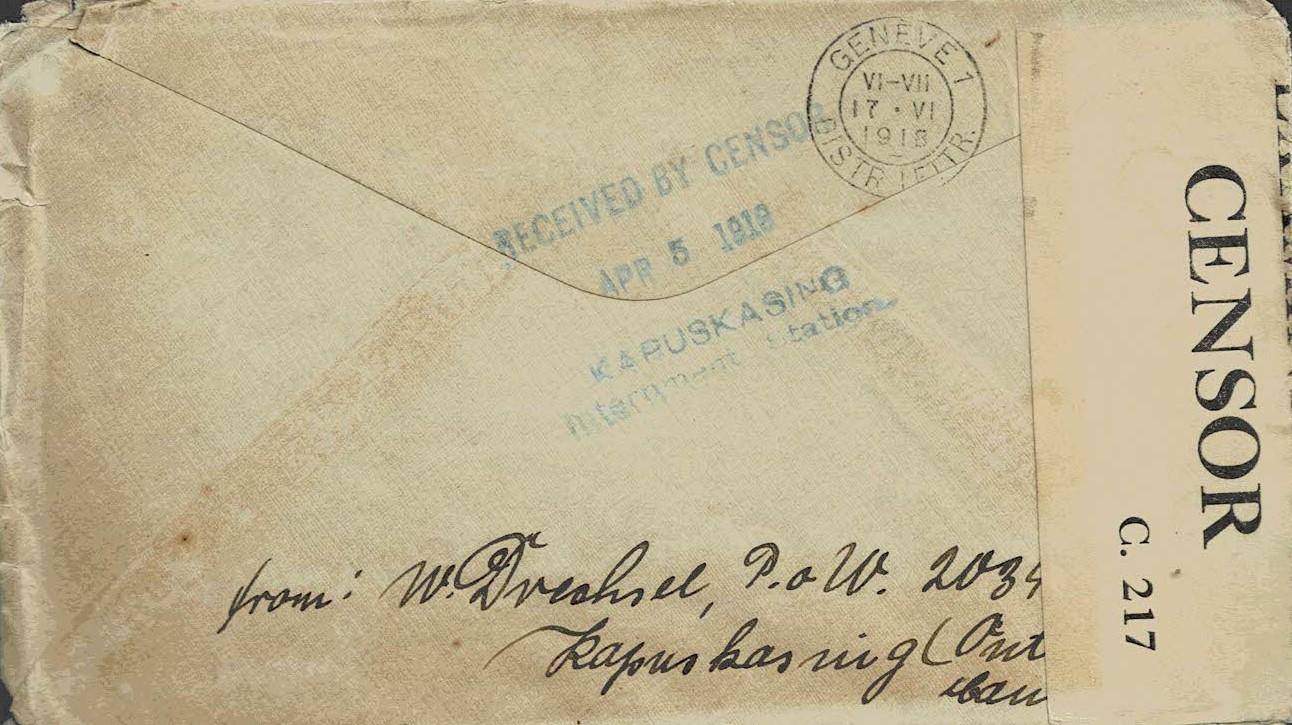 GENÈVE 1
VI-VII
17 · VI
1918
DISTR. LETTR.
RECEIVED BY CENSOR
APR 5 1918
KAPUSKASING
Internment Station
CENSOR
C. 217
from: W. Drechsel, P.o W. 2034
Kapuskasing (Ont
Can